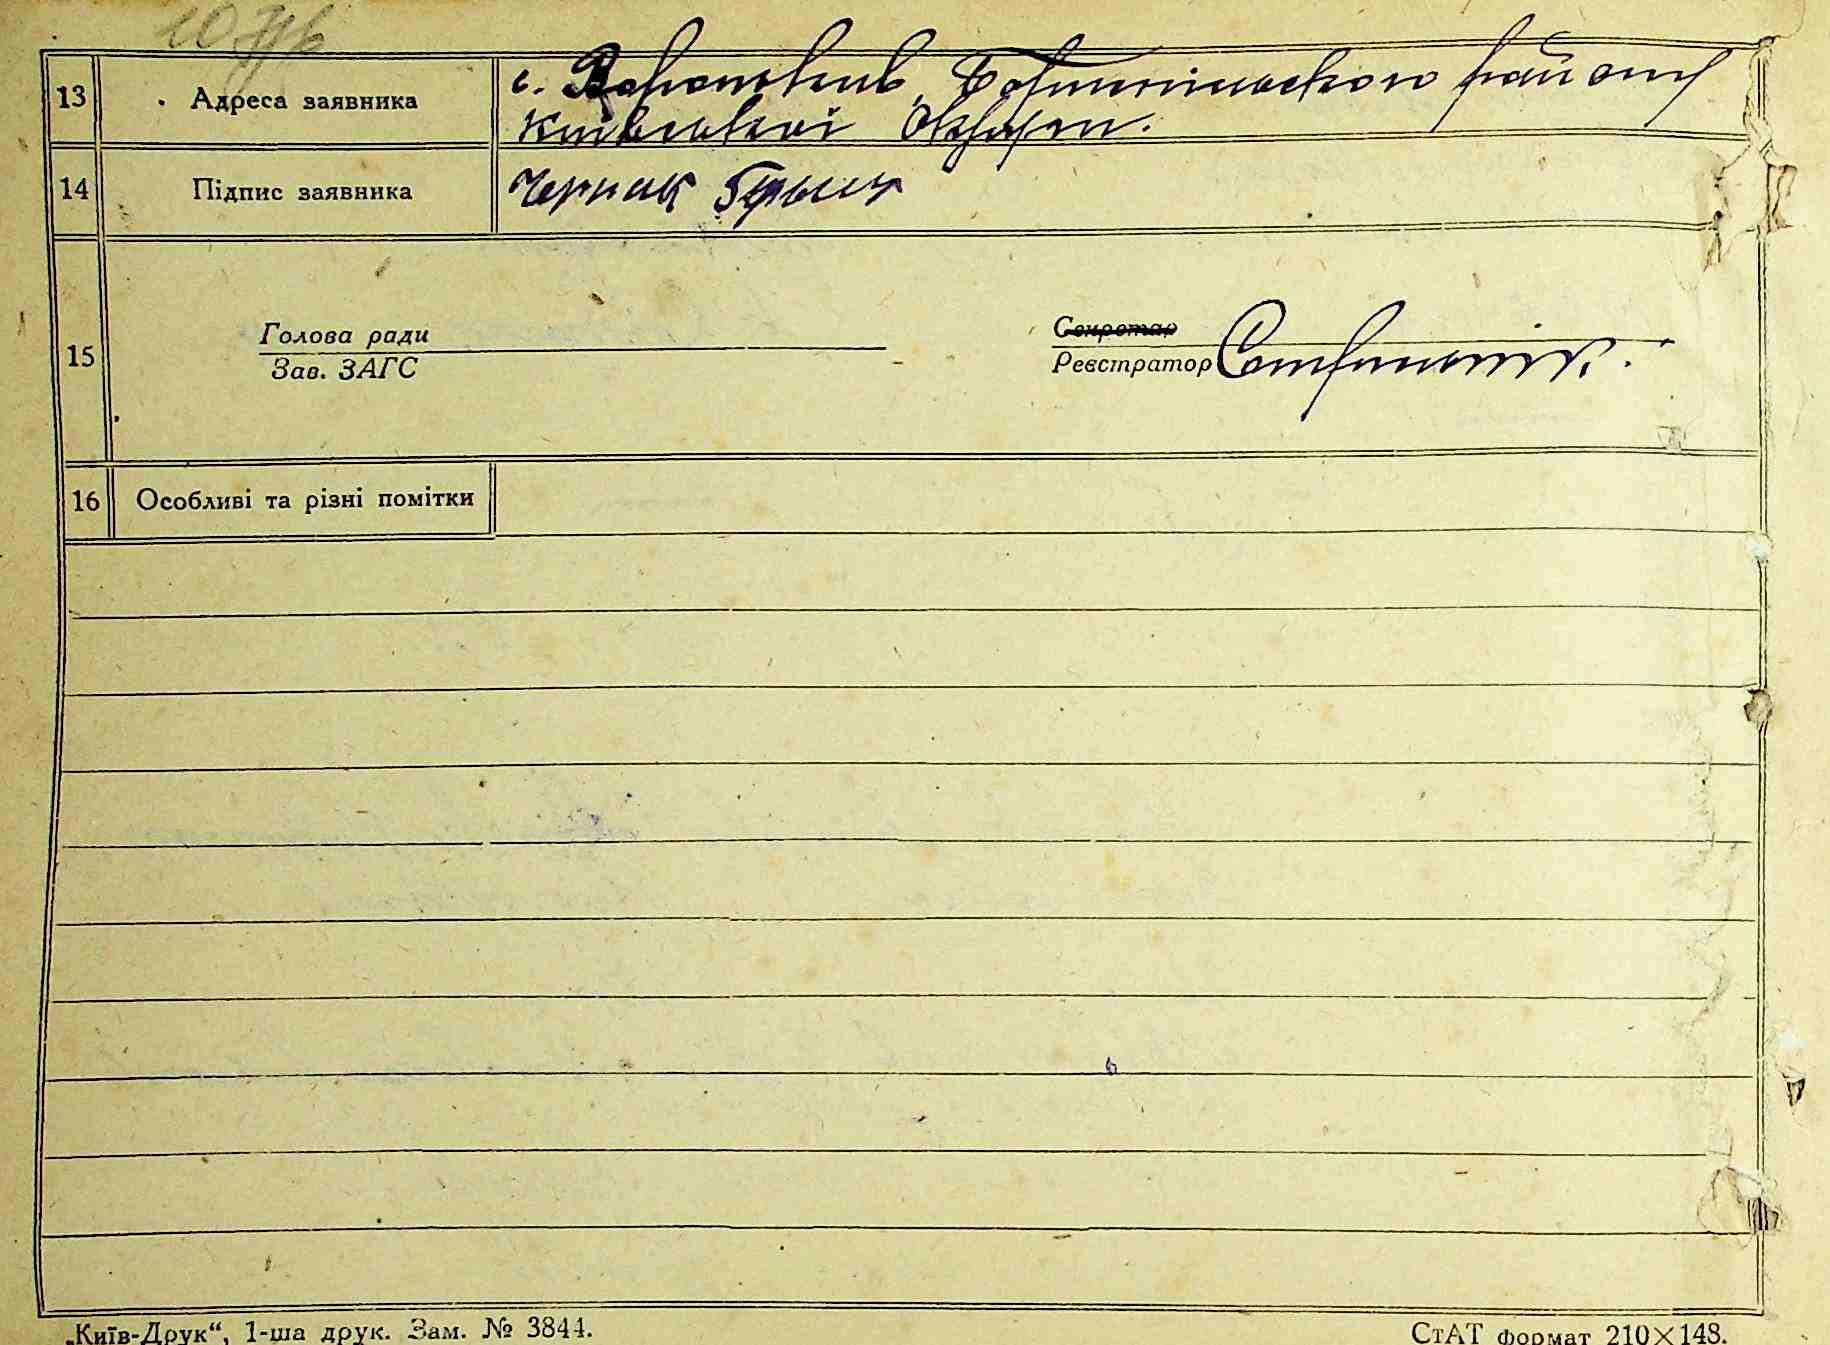 13 Адреса заявника с. Вороньків, Бориспільського району
Київської Округи.
14 Підпис заявника Черняк Грыцк
15 Голова ради
Зав. ЗАГС
Секретар
Реєстратор
16 Особливі та різні помітки
„Київ-Друк“, 1-ша друк. Зам. № 3844.
СтАТ формат 210×148.